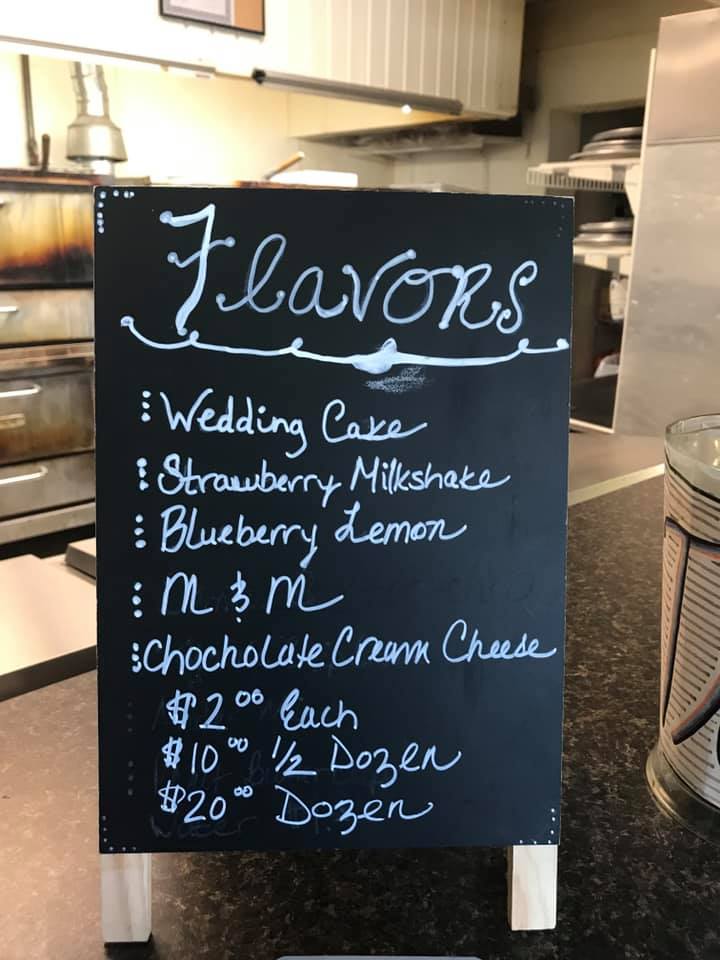 Flavors
Wedding Cake
Strawberry Milkshake
Blueberry Lemon
M & M
Chocholate Cream Cheese
$2.00 Each
$10.00 1/2 Dozen
$20.00 Dozen